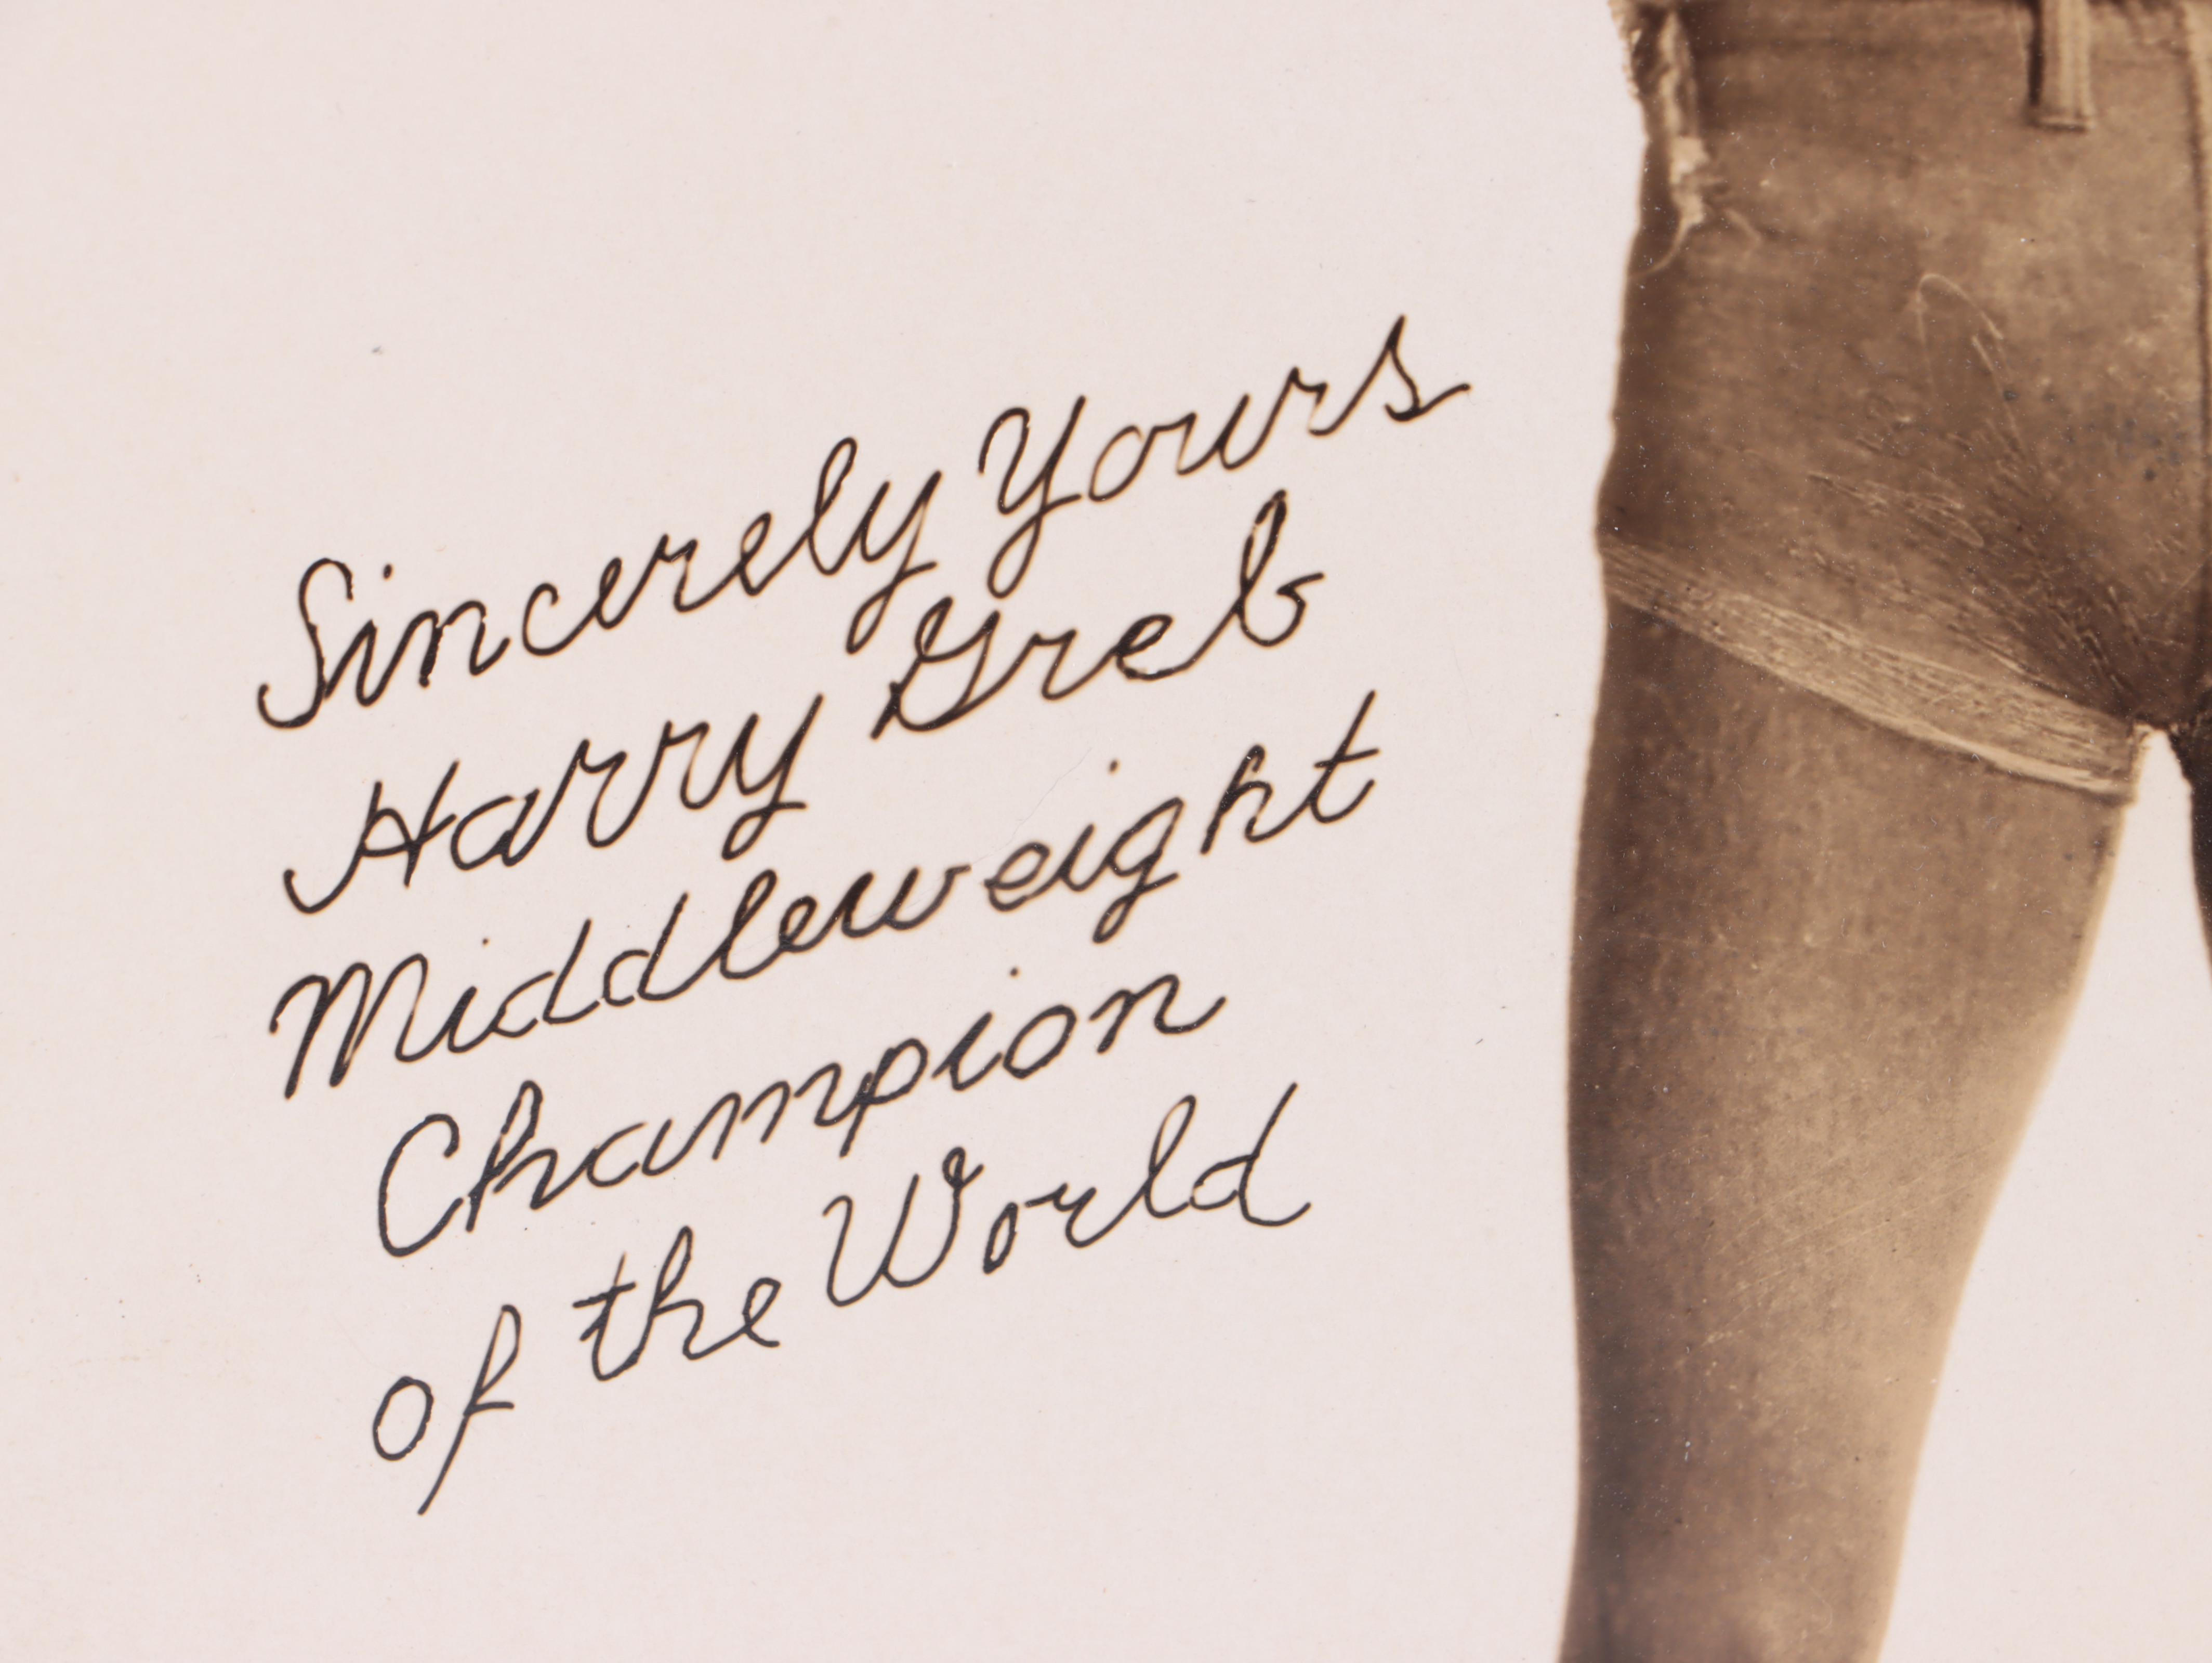 Sincerely Yours
Harry Greb
Middleweight
Champion
of the World